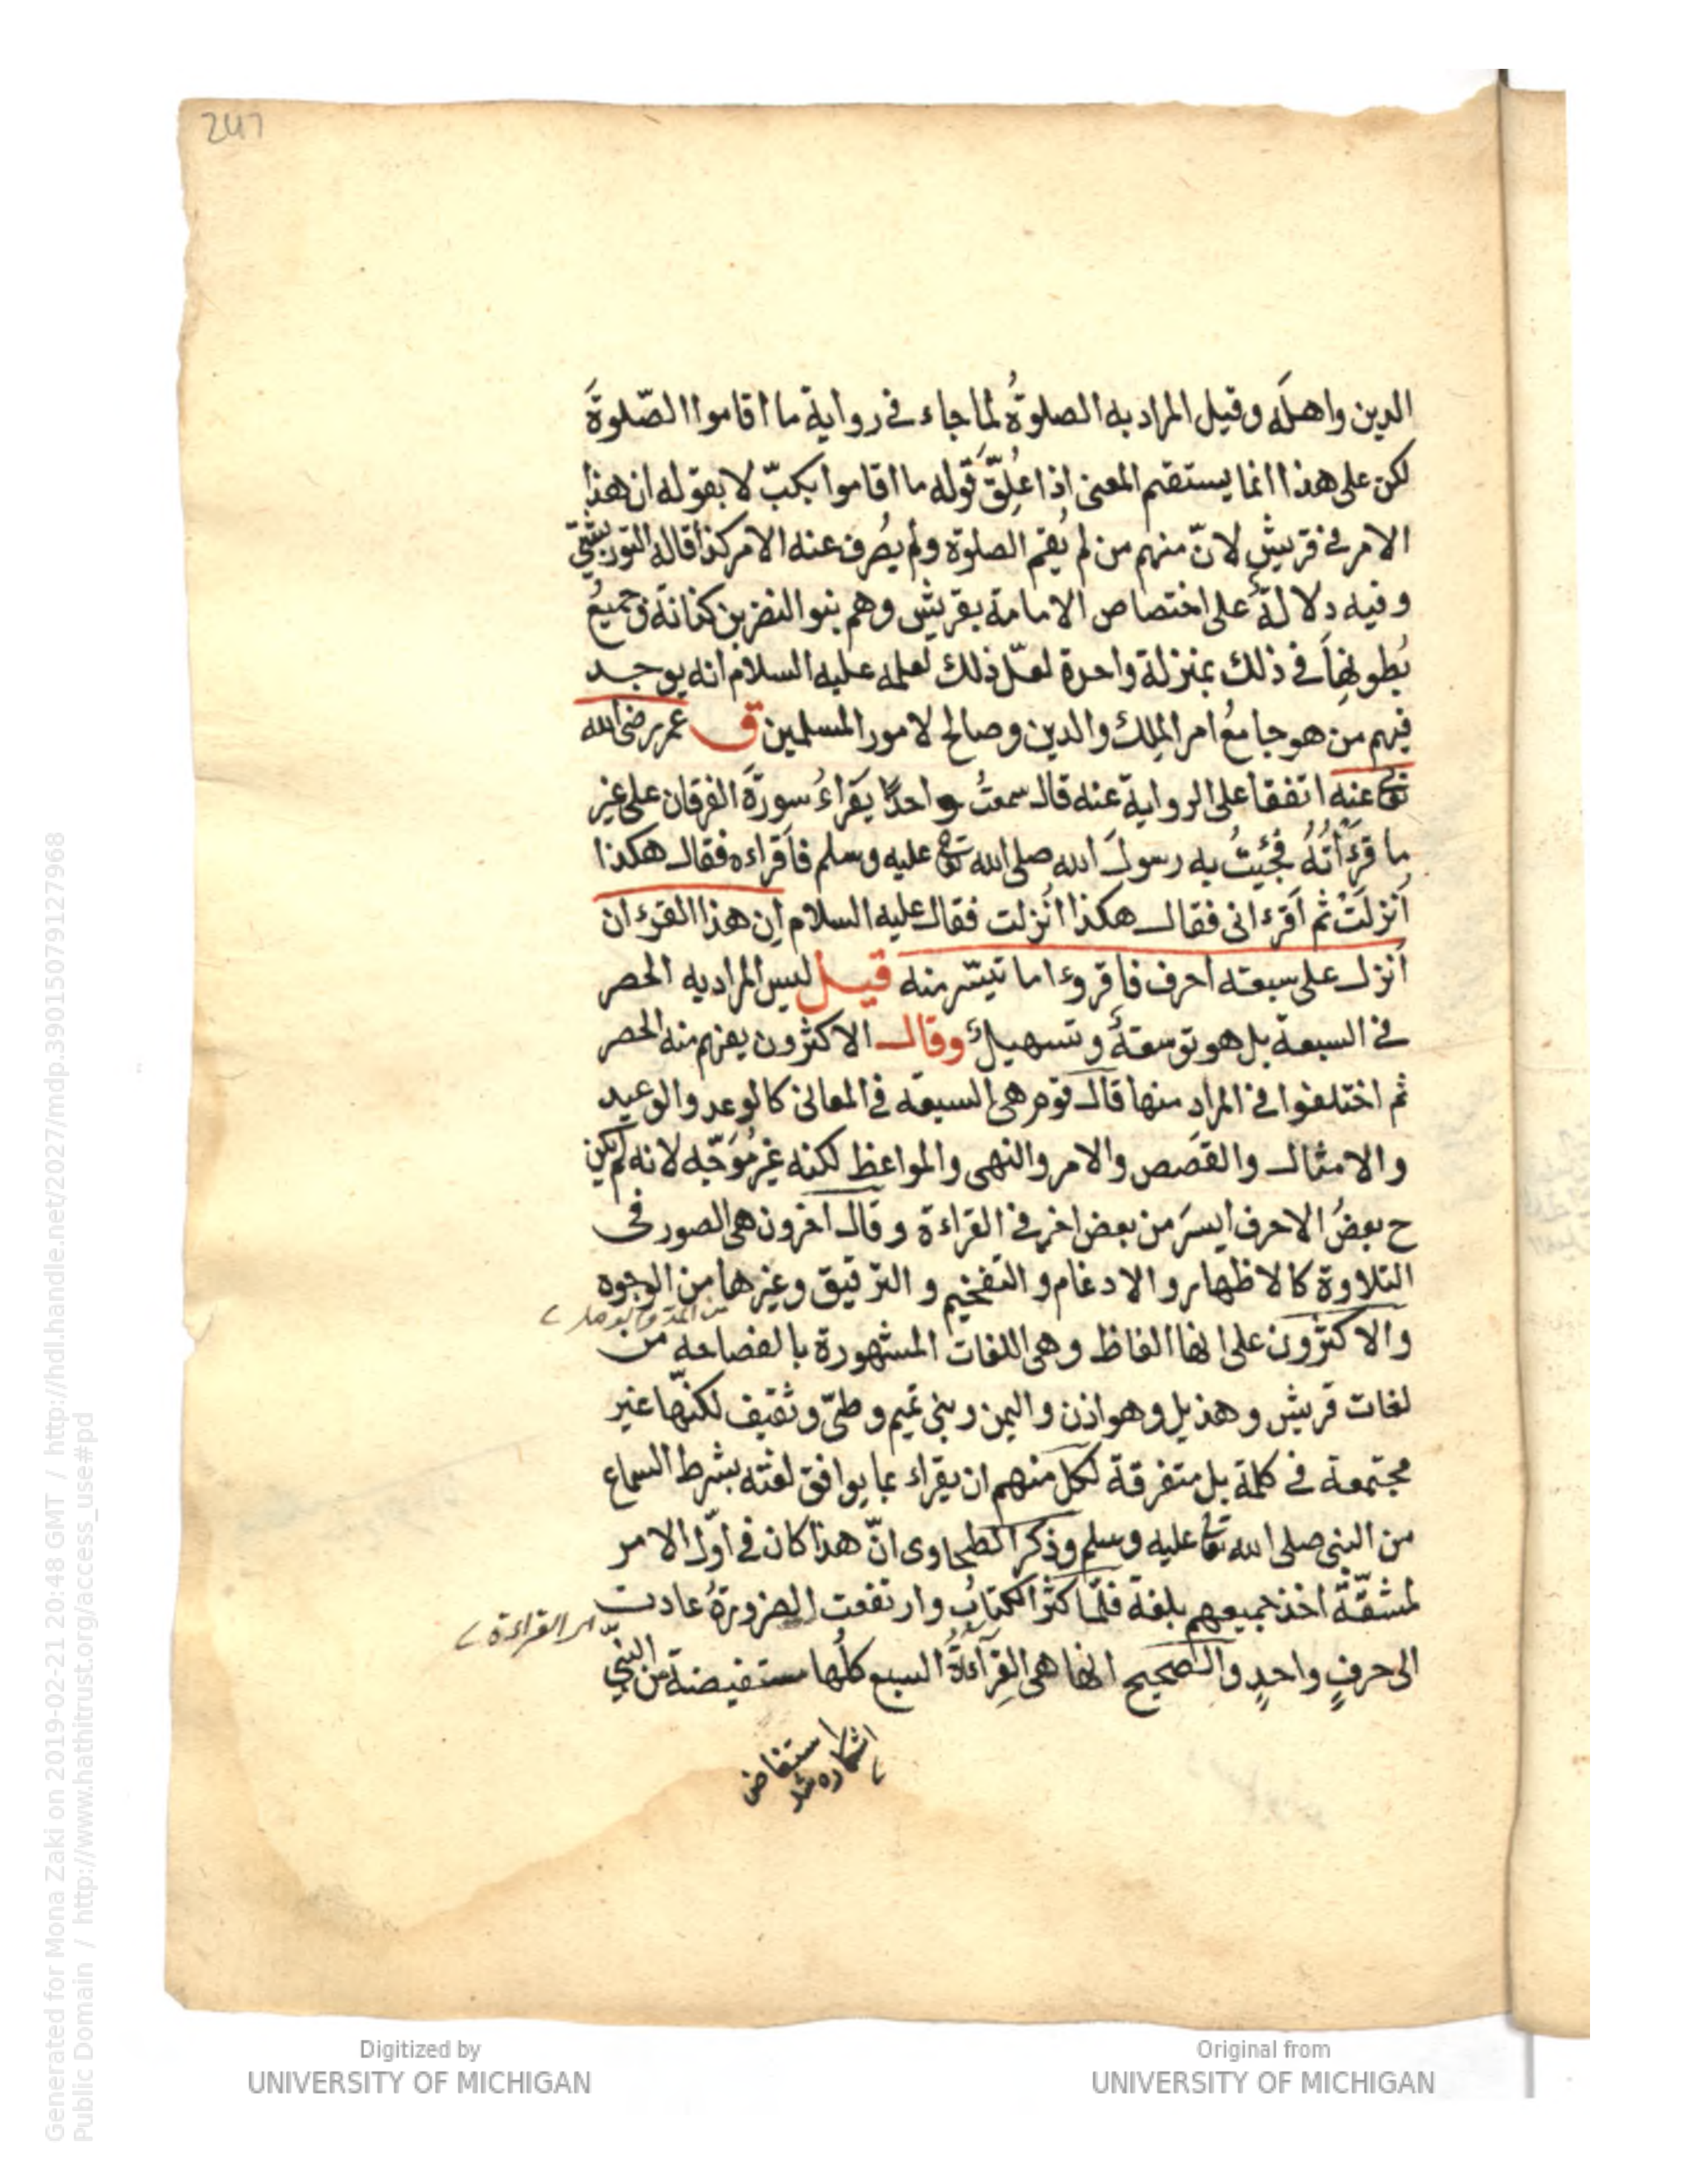 247
الدين واهله وقيل المراد به الصلوةُ لما جاء في رواية ما اقاموا الصّلوةَ
لكن على هذا انما يستقيم المعنى اذا عُلِّقَ قوله ما اقاموا بكبّ لا بقوله ان هذا
الامر في قريش لانّ منهم من لم يُقم الصلوة ولم يُصرف عنه الامر كذا قاله التوربشتي
وفيه دلالةٌ على اختصاص الامامة بقريش وهم بنو النضر بن كنانة وجميعُ
بُطونها في ذلك بمنزلة واحدة لعلّ ذلك لعلمه عليه السلام انه يوجد
فيهم من هو جامعُ امر المِلك والدين وصالح لامور المسلمين ق عمر رضى الله
تعالى عنه اتفقا على الرواية عنه قال سمعتُ واحدًا يَقراءُ سورةَ الفرقان على غير
ما قرءاتُهُ فجُيئتُ به رسولَ الله صلى الله تعالى عليه وسلم فاَقراءه فقال هكذا
اُنزلَتْ ثم اَقرءانى فقال هكذا اُنزلت فقال عليه السلام اِن هذا القرءان
اُنزل على سبعة احرف فاقروءا ما تيسّر منه قيل ليس المراد به الحصر
في السبعة بل هو توسعةٌ وتسهيلٌ وقال الاكثرون يفهم منه الحصر
ثم اختلفوا في المراد منها قال قوم هى السبعة في المعانى كالوعد والوعيد
والامثال والقصَص والامر والنهى والمواعظ لكنه غير مُوَجّه لانه لم يكن
ح بعضُ الاحرف ايسرَ من بعض اخر في القراءة وقال اخرون هى الصور فى
التلاوة كالاظهار والادغام والتفخيم والترقيق وغيرها من الوجوه
من المد
والاكثرون على انها الفاظ وهى اللغات المشهورة بالفصاحة من
لغات قريش وهذيل وهوازن واليمن وبنى تميم وطىّ وثقيف لكنّها غير
مجتمعة في كلمة بل متفرقة لكل منهم ان يقراء بما يوافق لغته بشرط السماع
من النبى صلى الله تعالى عليه وسلم وذكر الطحاوى انّ هذا كان في اوّل الامر
لمشقّة اخذ جميعهم بلغة فلمّا كثر الكتابُ وارتفعت الضرورةُ عادت
اى القراءة
الى حرفٍ واحدٍ والصحيح انها هى القِرآءةُ السبع كلُها مستفيضة من النبىّ
استفاض
اشكاره شد
Generated for Mona Zaki on 2019-02-21 20:48 GMT / http://hdl.handle.net/2027/mdp.39015079127968
Public Domain / http://www.hathitrust.org/access_use#pd
Digitized by
UNIVERSITY OF MICHIGAN
Original from
UNIVERSITY OF MICHIGAN